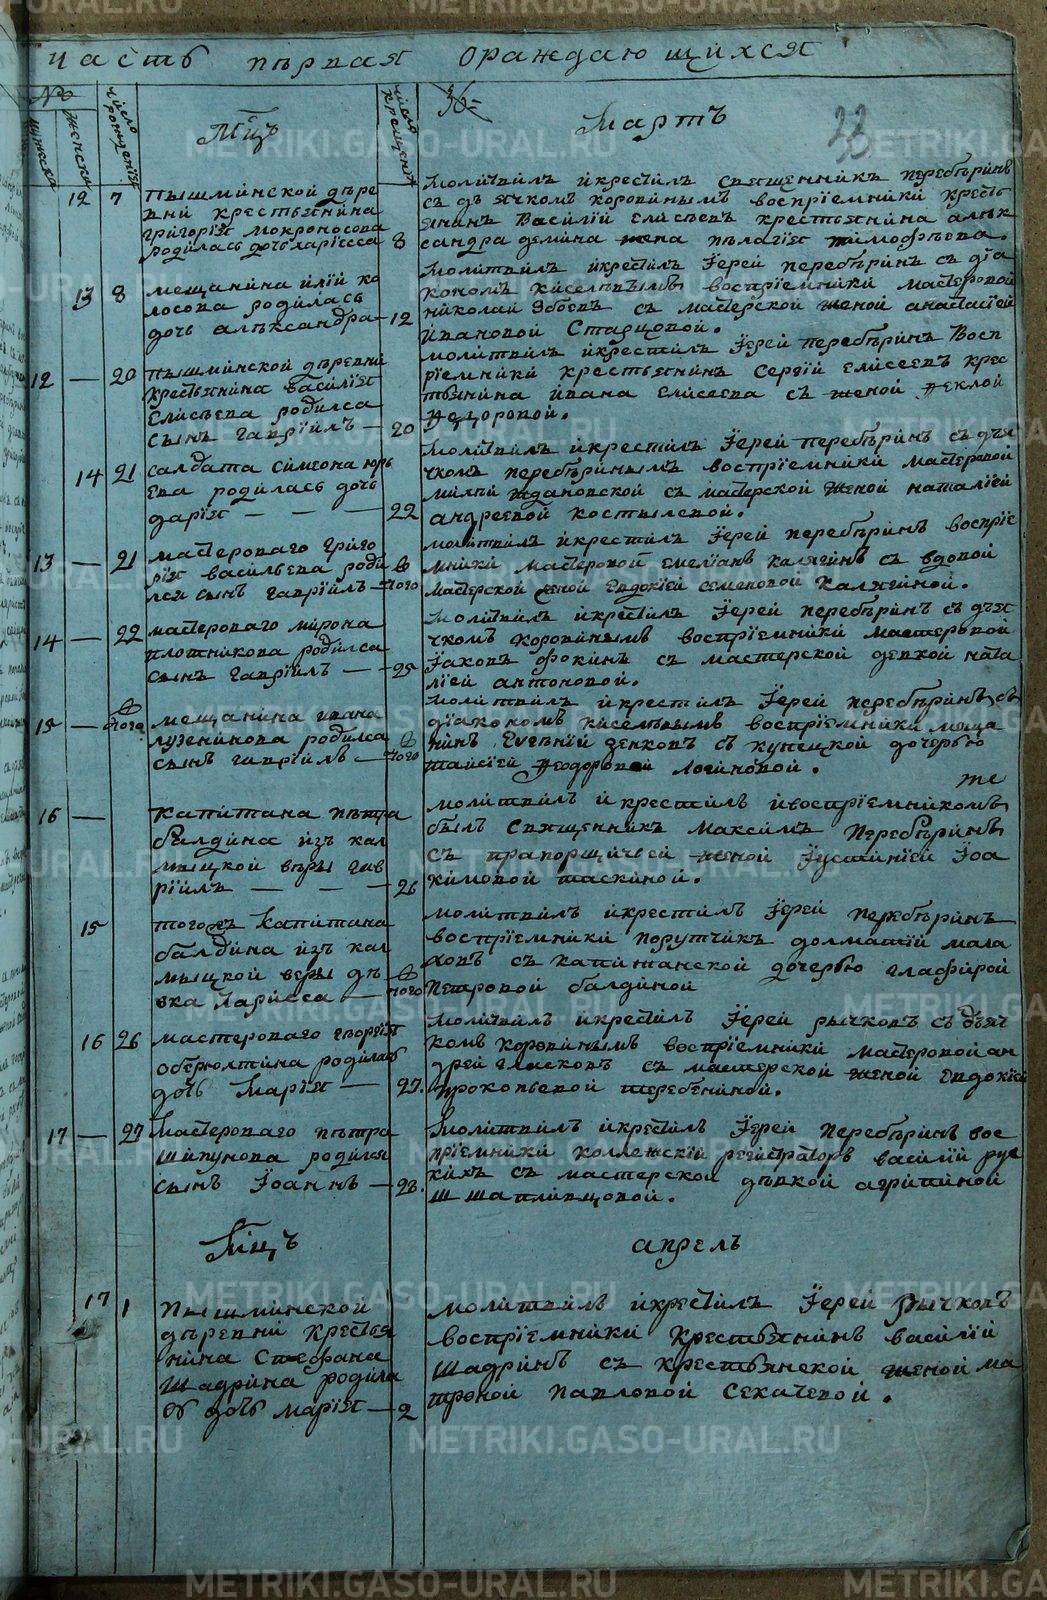 часть первая ораждающихся
№
мужеска
женска
число рождения
Мцъ
число крещения
Мартъ
12 7 пышминской дере
вни крестьянина
григория мокроносова
родилась дочь лариесса 8
молитвилъ икрестилъ священникъ переберинъ
съ дьячкомъ коровинымъ восприемники кресть
янинъ василий елисеевъ крестьянина алек
сандра демина жена пелагия тимофеева.
13 8 мещанина илии ко
лосова родилась
дочь александра 12
молитвилъ икрестилъ Iерей переберинъ съ диа
кономъ киселевымъ восприемники мастеровой
николай съ мастерской женой анастасией
ивановой Старцовой.
12 — 20 пышминской деревни
крестьянина василия
Елисеева родилса
сынъ гавриилъ — 20
молитвилъ икрестилъ Iерей переберинъ восп
риемники крестьянинъ Сергий елисеевъ крес
тьянина ивана елисеева съ женой феклой
федоровой.
14 21 салдата симеона юрь
ева родилась дочь
дария — — — 22
молитвилъ икрестилъ Iерей переберинъ съ дья
чкомъ переберинымъ восприемники мастеровой
ждановской съ мастерской женой наталией
андреевой костылевой.
13 — 21 мастероваго григо
рия васильева роди
лся сынъ гавриилъ — тогo
молитвилъ икрестилъ Iерей переберинъ восприе
мники мастеровой емелианъ калягинъ съ вдовой
мастерской женой евдокией семеновой калягиной.
14 — 22 мастероваго мирона
плотникова родилса
сынъ гавриилъ — 25
молитвилъ икрестилъ Iерей переберинъ съ дья
чкомъ коровинымъ восприемники мастеровой
Iаковъ фокинъ съ мастерской девкой ната
лией антоновой.
15 — того мещанина ивана
лузенинова родилса
сынъ гавриилъ — того
молитвилъ икрестилъ Iерей переберинъ съ
диакономъ киселевымъ восприемники меща
нинъ Евгений зенковъ съ купецкой дочерью
таисией феодоровой логиновой.
16 — капитана петра
балдина изъ кал
мыцкой веры гав
риилъ — — — 26
молитвилъ икрестилъ ивосприемникомъ же
былъ священникъ Максимъ Переберинъ
съ прапорщичьей женой Iустинией Iоа
кимовой таскиной.
15 тогожъ капитана
балдина изъ кал
мыцкой веры де
вка Ларисса — того
молитвилъ икрестилъ Iерей переберинъ
восприемники порутчикъ долматий мала
ховъ съ капитанской дочерью глафирой
Петровой балдиной
16 26 мастероваго георгия
оберюхтина родилась
дочь Мария — 27.
молитвилъ икрестилъ Iерей рычковъ съ дьяч
комъ коровинымъ восприемники мастеровой ан
дрей гласковъ съ мастерской женой евдокией
прокопьевой теребениной.
17 — 27 мастероваго петра
шипунова родился
сынъ Iоаннъ — 28.
молитвилъ икрестилъ Iерей переберинъ вос
приемники коллежский регистраторъ василий рус
кихъ съ мастерской девкой агрипиной
шаплывцовой.
Мцъ апрель
17 1 пышминской
деревни кресья
нина Стефана
шадрина родила
сь дочь мария — 2
молитвилъ икрестилъ Iерей Рычковъ
восприемники крестьянинъ василий
шадринъ съ крестьянской женой ма
троной Павловой Секачевой.